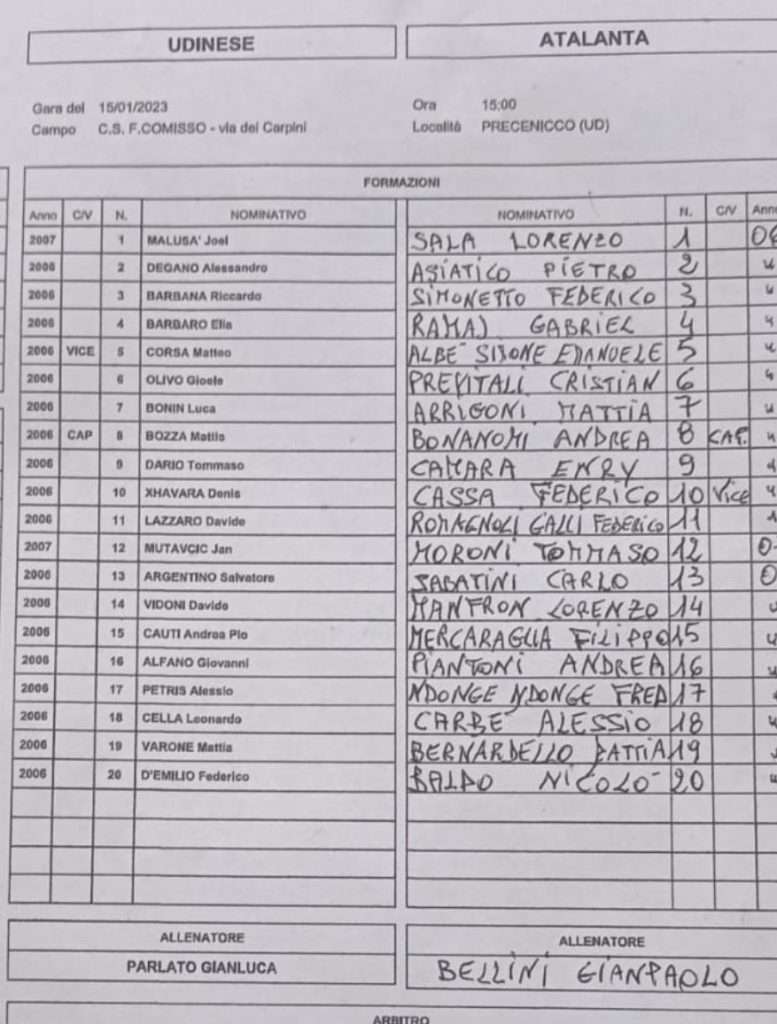 UDINESE ATALANTA
Gara del 15/01/2023 Ora 15:00
Campo C.S. F.COMISSO - via dei Carpini Località PRECENICCO (UD)
FORMAZIONI
Anno C/V N. NOMINATIVO NOMINATIVO N. C/V Anno
2007 1 MALUSA' Joel SALA LORENZO 1 06
2006 2 DEGANO Alessandro ASIATICO PIETRO 2 "
2006 3 BARBANA Riccardo SIMONETTO FEDERICO 3 "
2006 4 BARBARO Elia RAMAJ GABRIEL 4 "
2006 VICE 5 CORSA Matteo ALBE' SIMONE EMANUELE 5 "
2006 6 OLIVO Gioele PREVITALI CRISTIAN 6 "
2006 7 BONIN Luca ARRIGONI MATTIA 7 "
2006 CAP 8 BOZZA Mattia BONANOMI ANDREA 8 CAP. "
2006 9 DARIO Tommaso CAMARA ENRY 9 "
2006 10 XHAVARA Denis CASSA FEDERICO 10 Vice "
2006 11 LAZZARO Davide ROMAGNOLI GALLI FEDERICO 11 "
2007 12 MUTAVCIC Jan MORONI TOMMASO 12
2006 13 ARGENTINO Salvatore SABATINI CARLO 13
2006 14 VIDONI Davide MANFRON LORENZO 14 "
2006 15 CAUTI Andrea Pio MERCARAGLIA FILIPPO 15 "
2006 16 ALFANO Giovanni PIANTONI ANDREA 16 "
2006 17 PETRIS Alessio NDONGE NDONGE FRED 17
2006 18 CELLA Leonardo CARBE' ALESSIO 18 "
2006 19 VARONE Mattia BERNARDELLO MATTIA 19 "
2006 20 D'EMILIO Federico BALDO NICOLO' 20 "
ALLENATORE ALLENATORE
PARLATO GIANLUCA BELLINI GIANPAOLO
ARBITRO